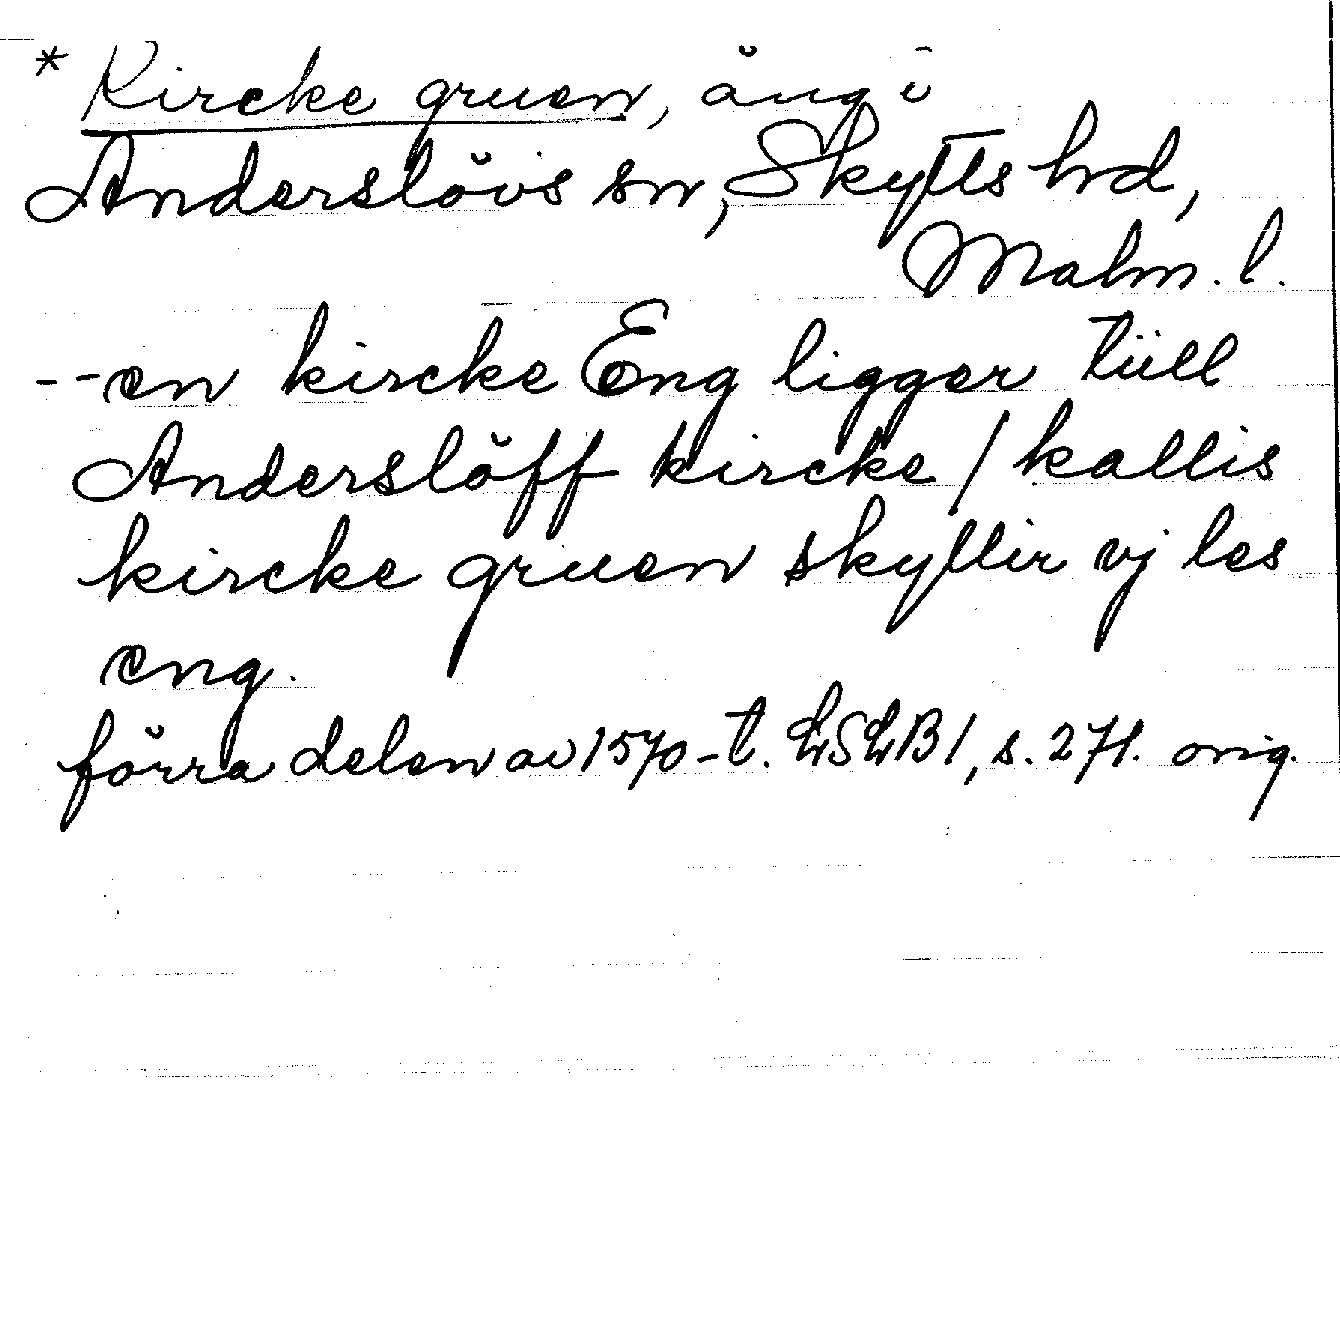 * Kircke gruen, äng i
Anderslövs sn, Skytts hd,
Malm. l.
-- en kircke Eng ligger tüll
Anderslöff kircke / kallis
kircke gruen skyllir vj les
eng.
förra delen av 1570-t. LSLB1, s. 271. orig.